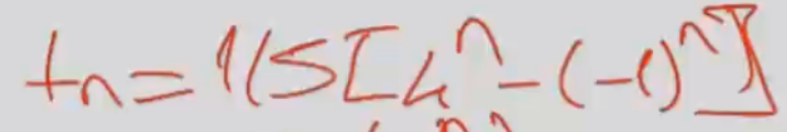 tn = 1/5 [4^n - (-1)^n]